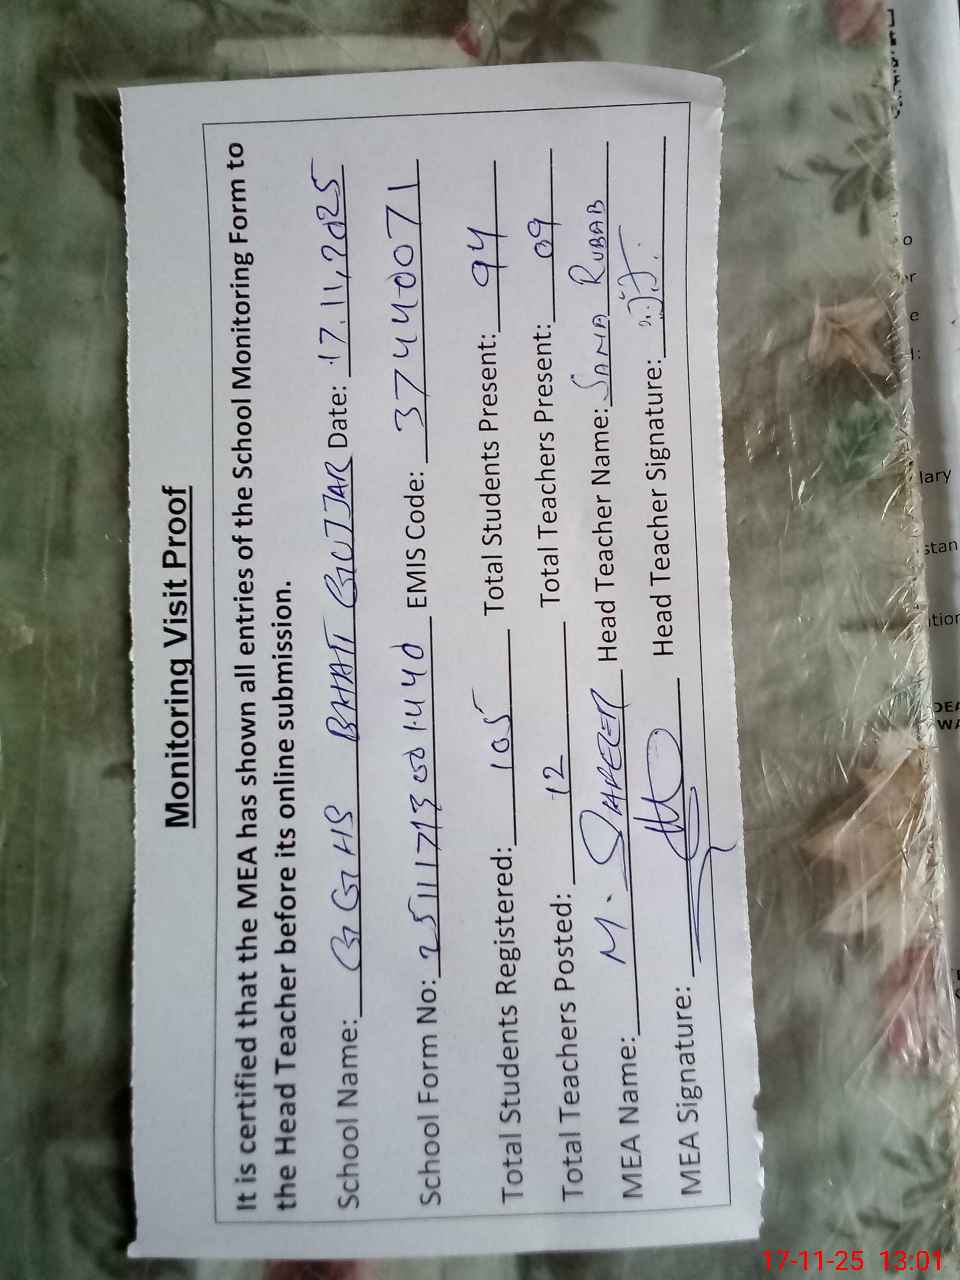 Monitoring Visit Proof
It is certified that the MEA has shown all entries of the School Monitoring Form to
the Head Teacher before its online submission.
School Name: GGHS BHATI GUJJAR Date: 17.11.2025
School Form No: 25111713001440 EMIS Code: 37440071
Total Students Registered: 105 Total Students Present: 94
Total Teachers Posted: 12 Total Teachers Present: 09
MEA Name: M. SHAFEER Head Teacher Name: SANIA RUBAB
MEA Signature: Head Teacher Signature:
lary
stan
17-11-25 13:01